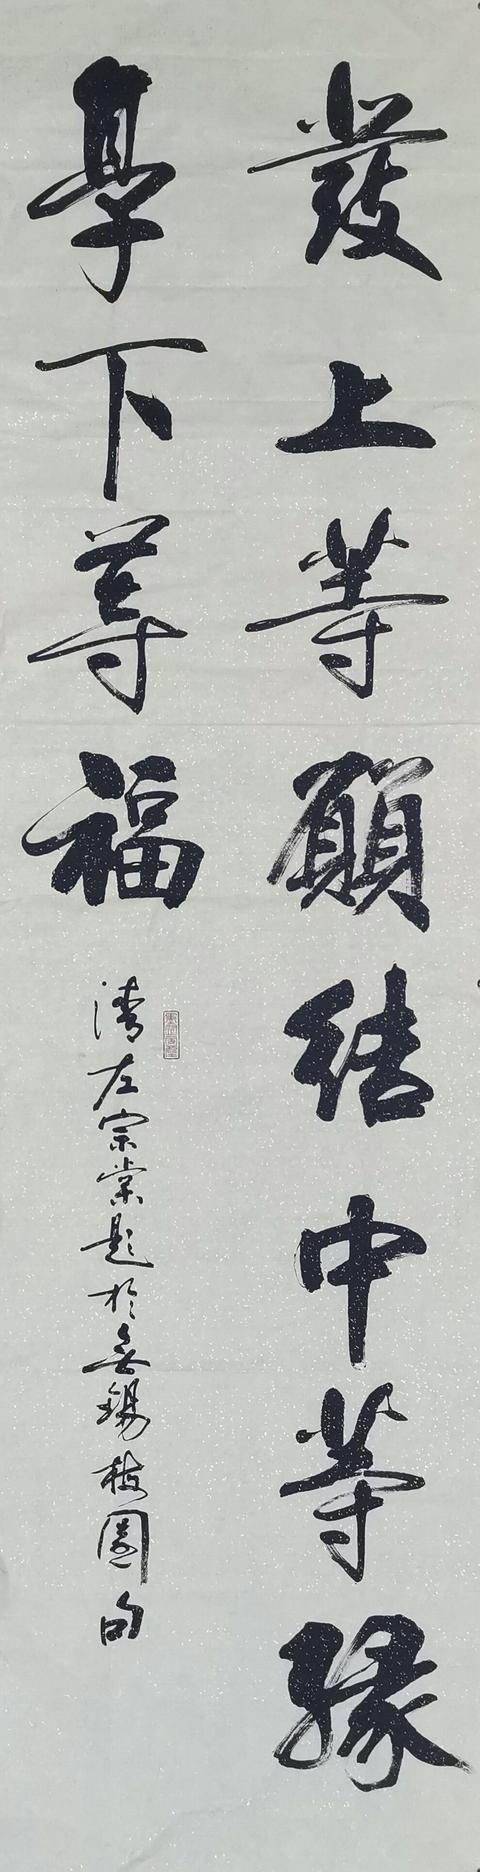 發上等願結中等緣
享下等福
清左宗棠題於無錫梅園句